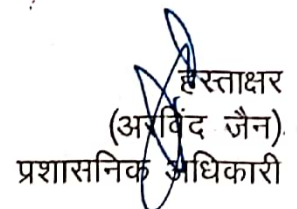 हस्ताक्षर
(अरविंद जैन)
प्रशासनिक अधिकारी